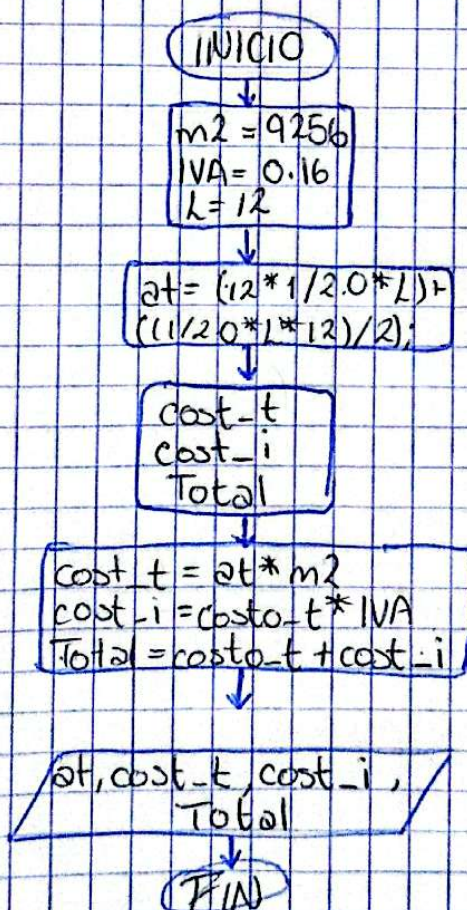 INICIO
m2 = 9256
IVA = 0.16
L = 12
at = (12*1/2.0*L)+
((1/2.0*L*12)/2);
cost_t
cost_i
Total
cost_t = at*m2
cost_i = costo_t*IVA
Total = costo_t + cost_i
at, cost_t, cost_i,
Total
FIN